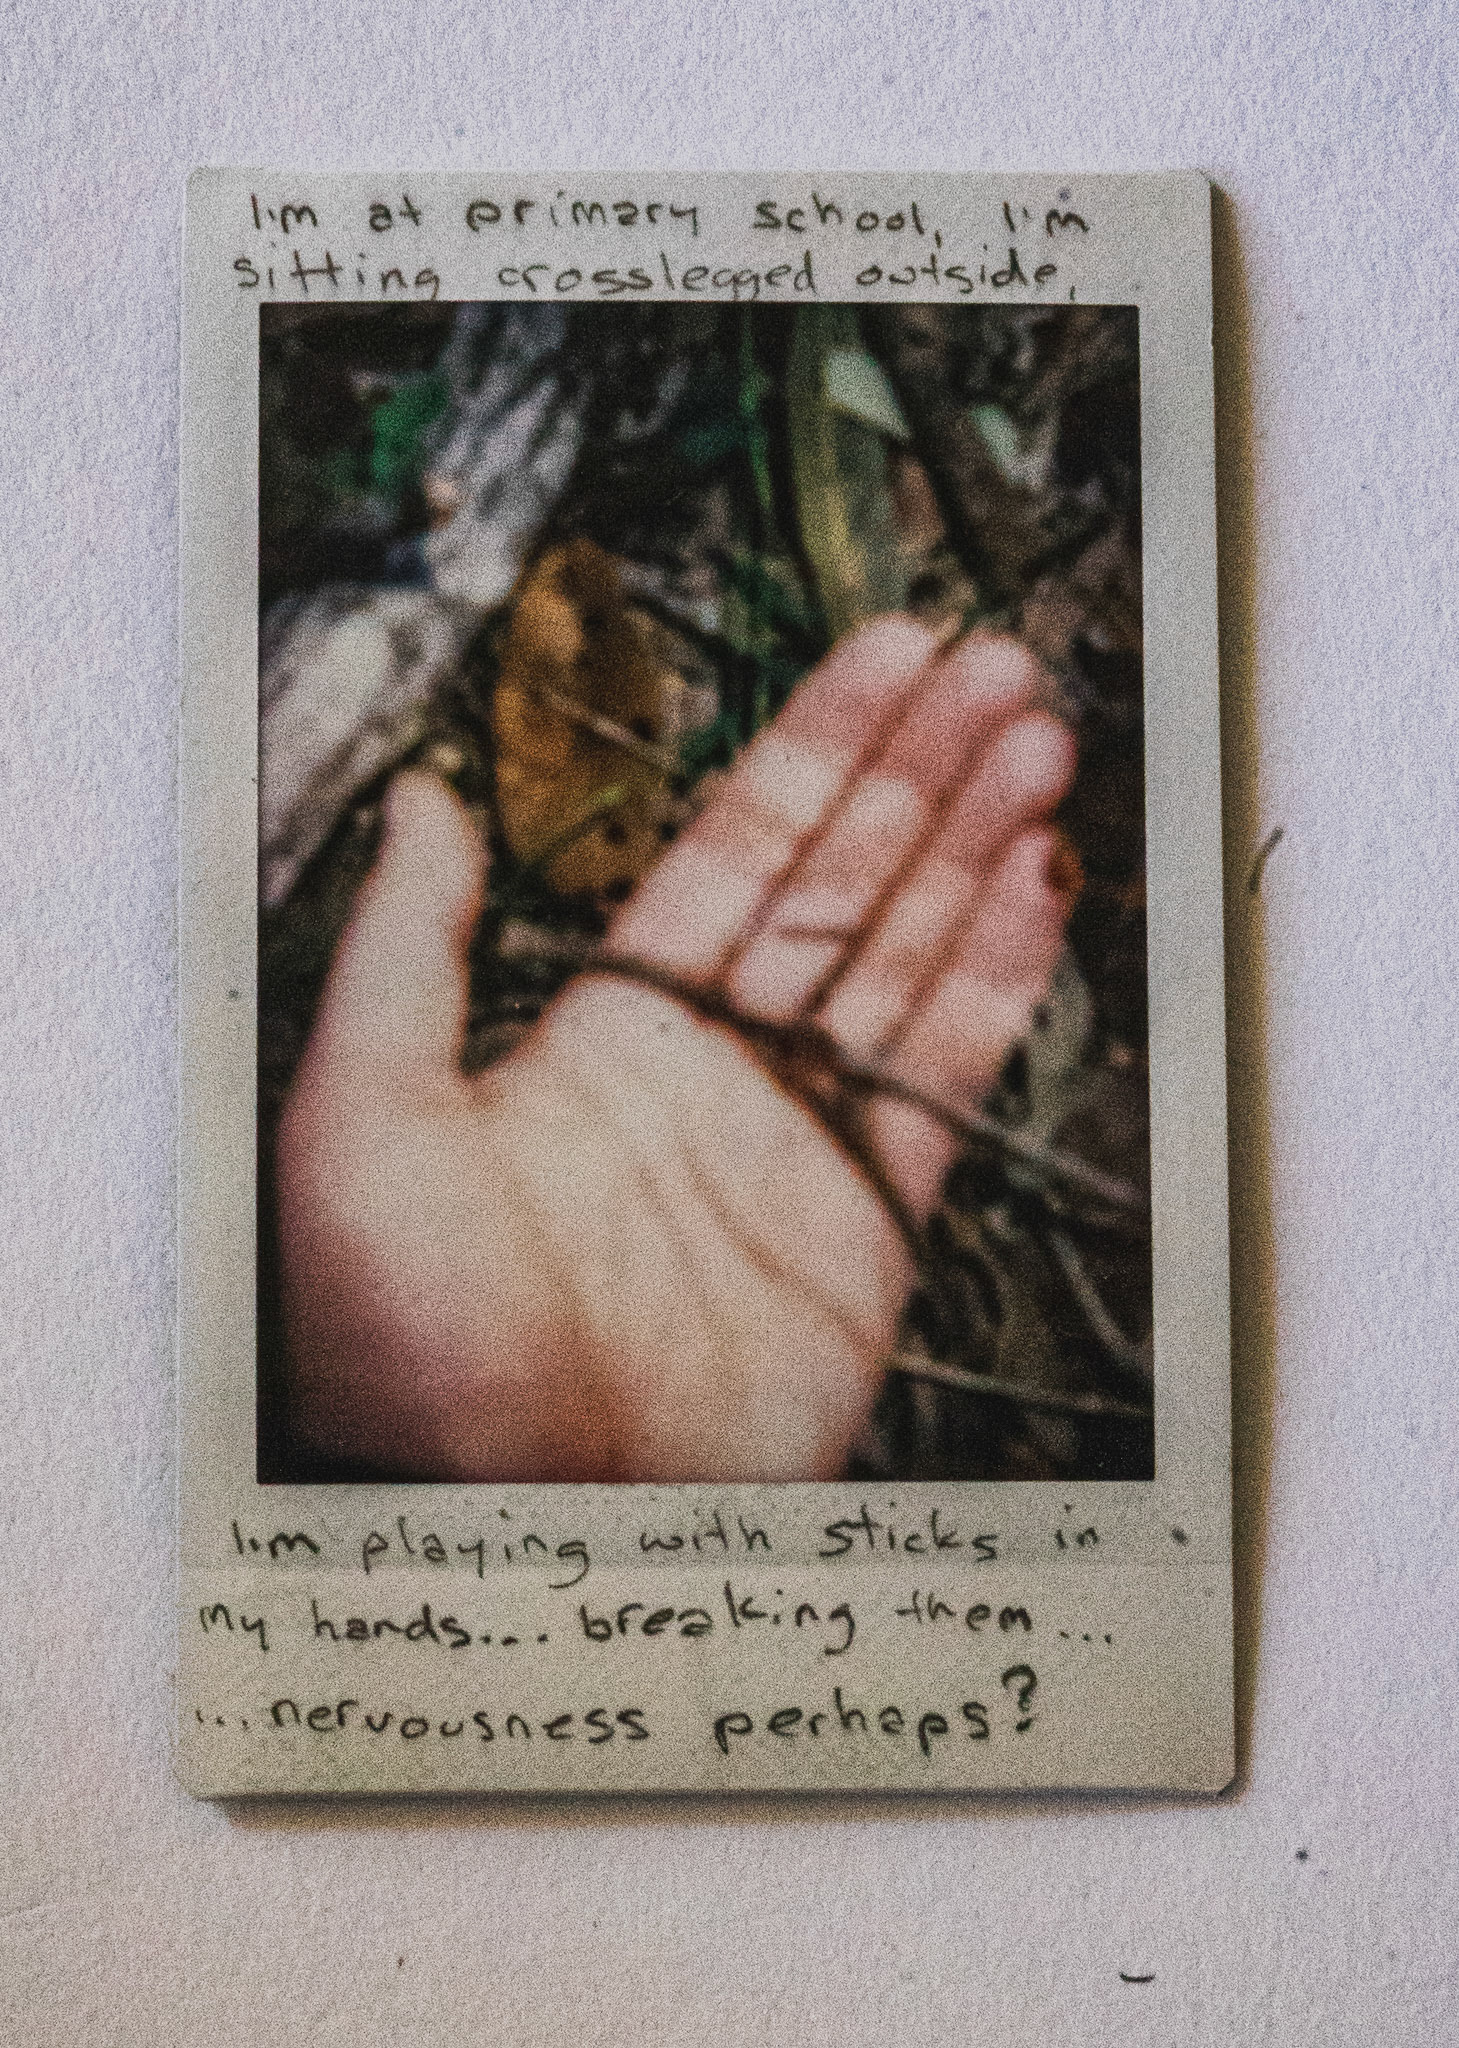 I'm at primary school, I'm
sitting crosslegged outside,
I'm playing with sticks in
my hands... breaking them...
...nervousness perhaps?